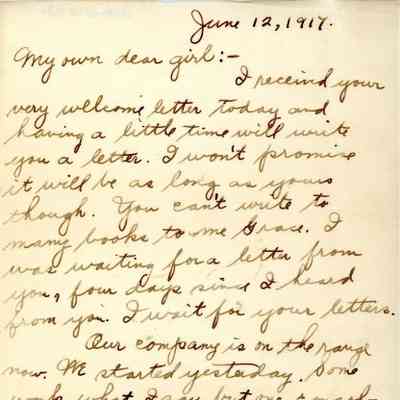 June 12, 1917.
My own dear girl:-
I received your
very wellcome letter today and
having a little time will write
you a letter. I won't promise
it will be as long as yours
though. You can't write to
many books to me Grace. I
was waiting for a letter from
you, four days since I heard
from you. I wait for your letters.
Our company is on the range
now. We started yesterday. Some
work what I say but one